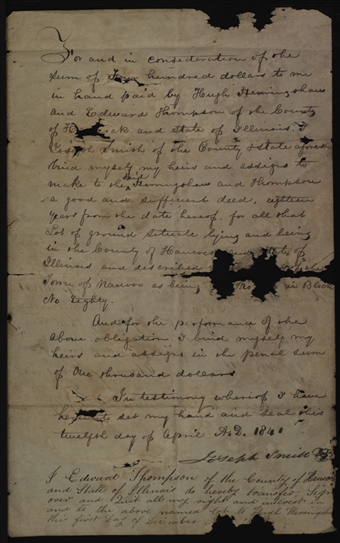 For and in consideration of the
sum of five hundred dollars to me
in hand paid by Hugh Herringshaw
and Edward Thompson of the County
of H ock and State of Illinois. I
Joseph Smith of the County & state aforesaid
bind myself my heirs and assigns to
make to the said Herringshaw and Thompson
a good and sufficient deed, eighteen
years from the date hereof, for all that
Lot of ground situate lying and being
in the County of Hancock and State of
Illinois and described the
Town of Nauvoo as being No in Block
No Eighty.
And for the performance of the
above obligation I bind myself my
heirs and assigns in the penal sum
of One thousand dollars
In testimony whereof I have
hereunto set my hand and seal this
twelfth day of April A.D. 1841
Joseph Smith
I Edward Thompson of the County of Hancock
and State of Illinois do hereby transfer, Sign
over and Quit all my right and interest in
and to the above named Lot to Hugh Herringshaw
this first Day of December